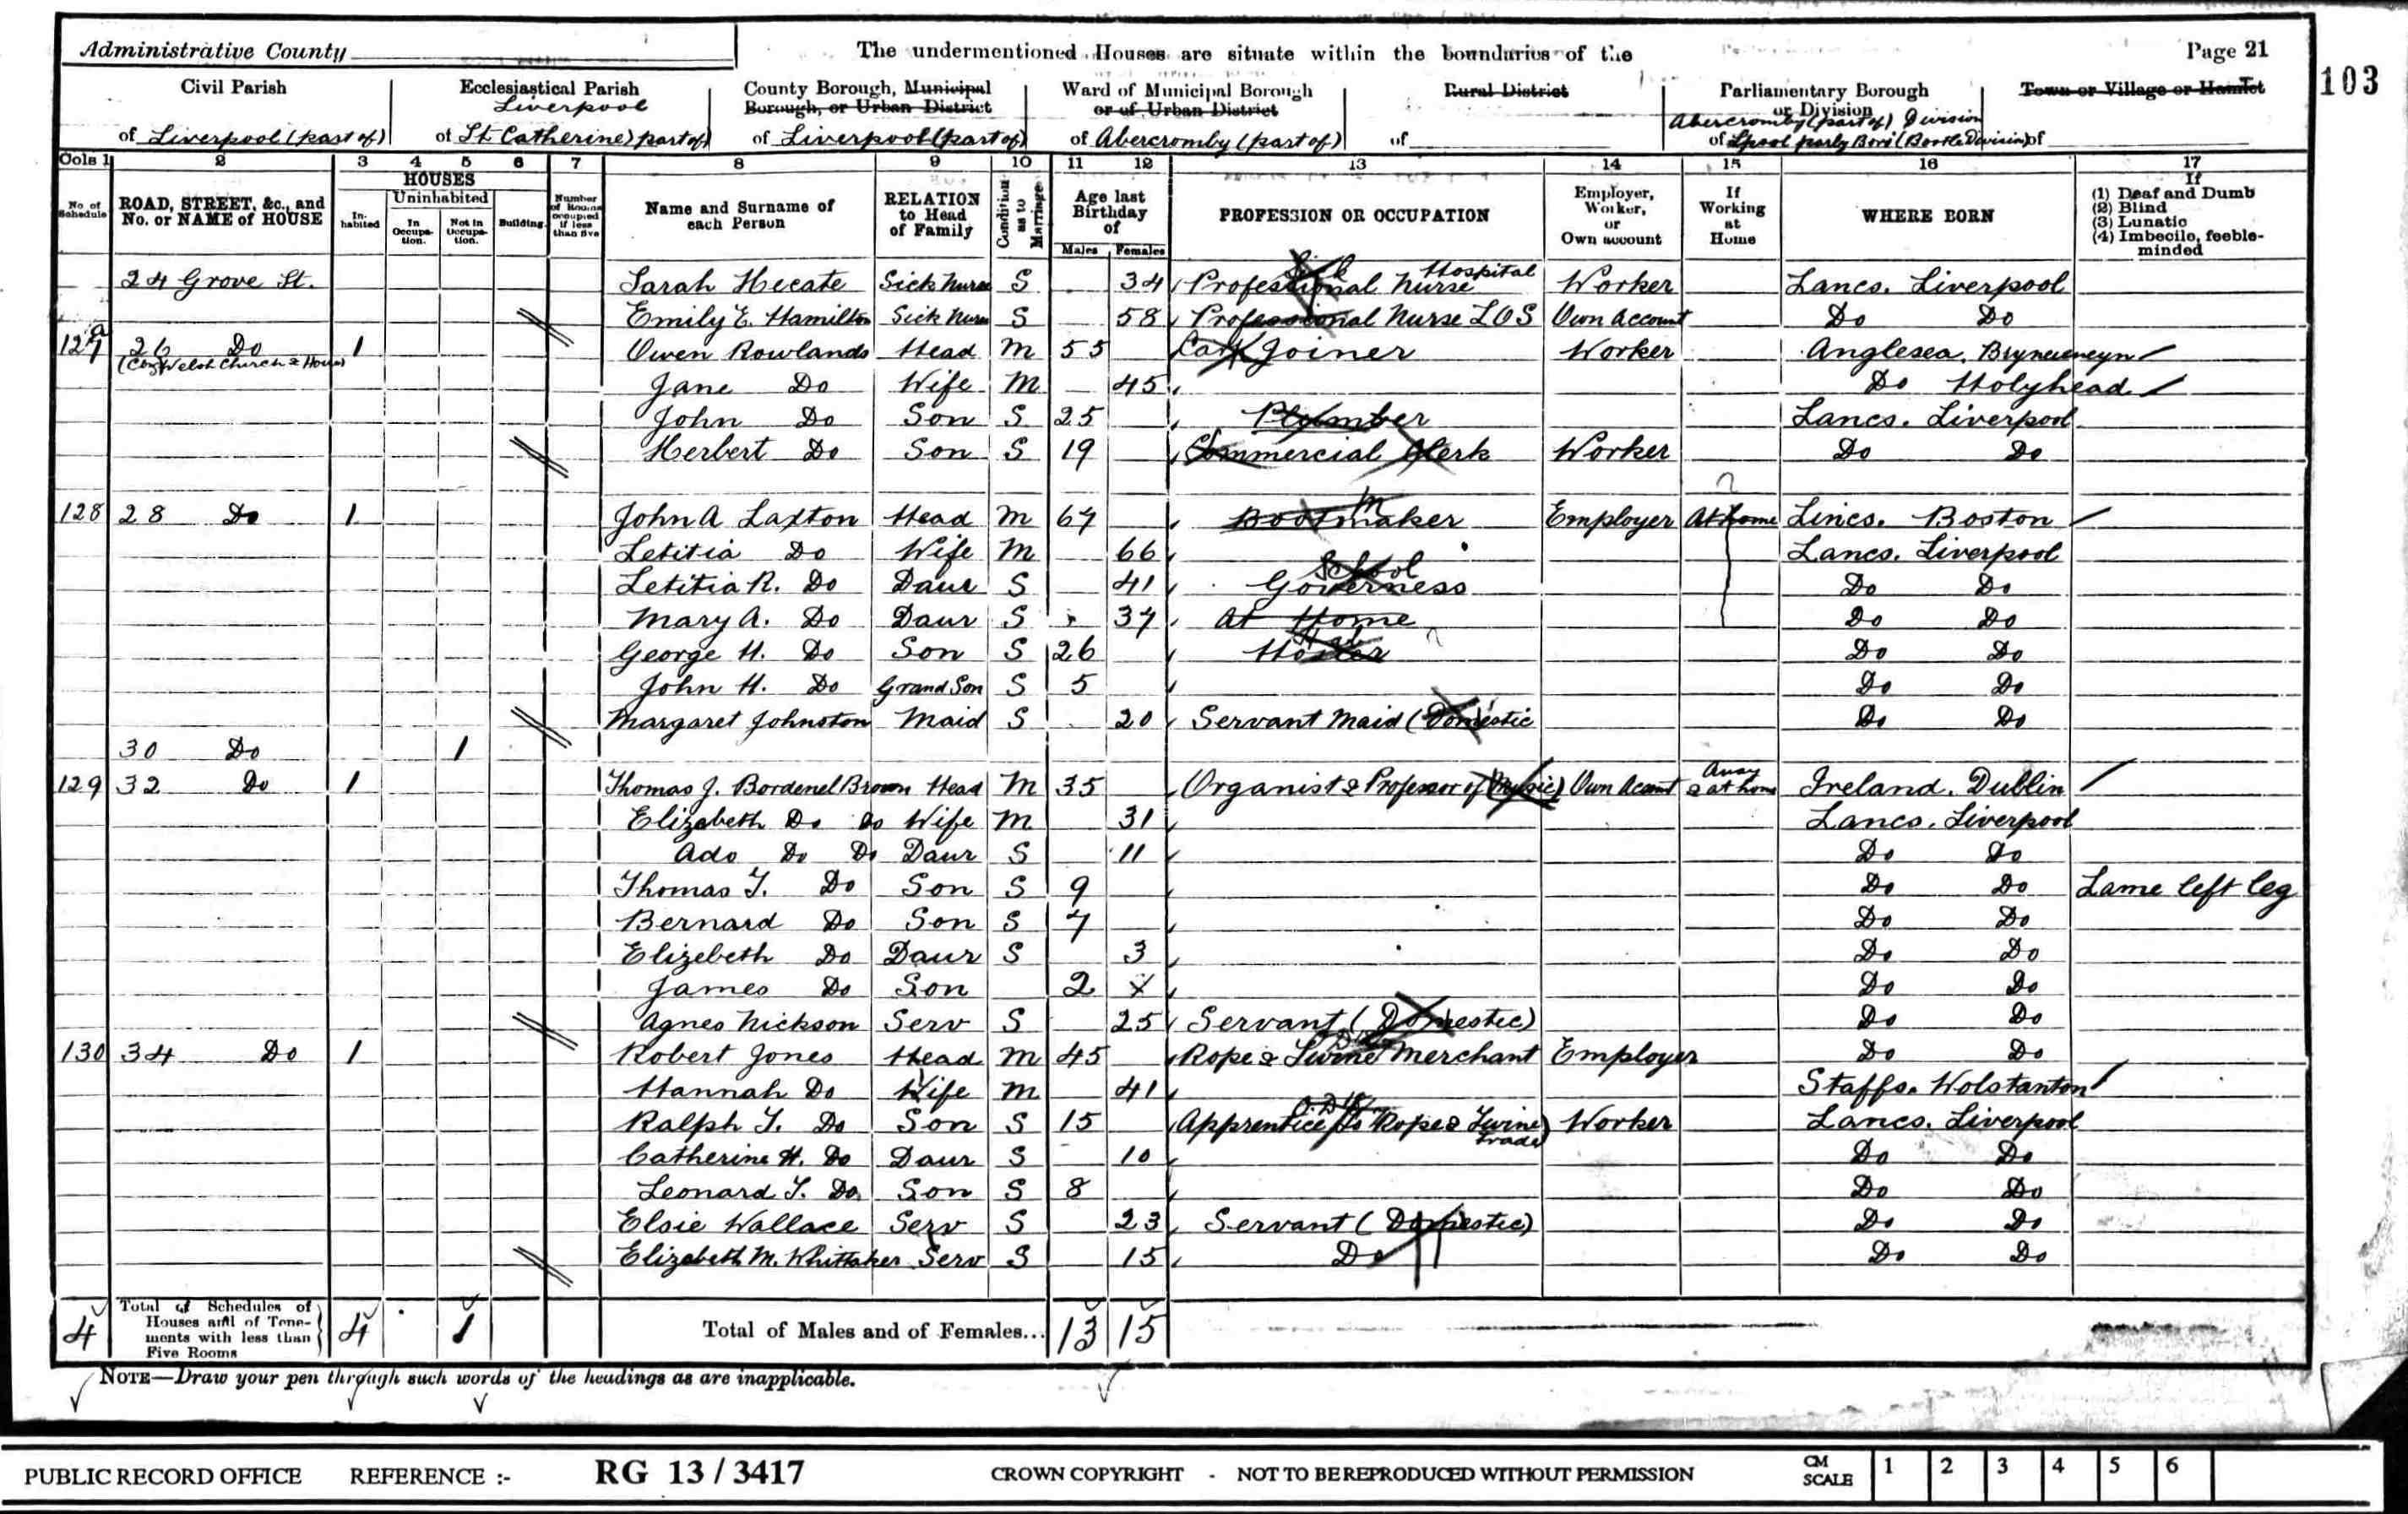 Administrative County
The undermentioned Houses are situate within the boundaries of the
Page 21
103
Civil Parish
of Liverpool (part of)
Ecclesiastical Parish
Liverpool
of St. Catherine) part of)
County Borough, Municipal
Borough, or Urban District
of Liverpool (part of)
Ward of Municipal Borough
or of Urban District
of Abercromby (part of)
Rural District
of
Parliamentary Borough
or Division
Abercromby (part of) Division
of Lpool parly Boro' (Bootle Division)
Town or Village or Hamlet
of
Cols 1 2 3 4 5 6 7 8 9 10 11 12 13 14 15 16 17
No. of Schedule
ROAD, STREET, &c., and No. or NAME of HOUSE
HOUSES
Inhabited
Uninhabited
In Occupation.
Not in Occupation.
Building
Number of Rooms occupied if less than five
Name and Surname of each Person
RELATION to Head of Family
Condition as to Marriage
Age last Birthday of
Males Females
PROFESSION OR OCCUPATION
Employer, Worker, or Own account
If Working at Home
WHERE BORN
If
(1) Deaf and Dumb
(2) Blind
(3) Lunatic
(4) Imbecile, feeble-minded
24 Grove St. Sarah Hecate Sick Nurse S 34 Professional Nurse Hospital Worker Lancs. Liverpool
Emily E. Hamilton Sick Nurse S 58 Professional Nurse LOS Own Account Do Do
127 26 Do 1 Owen Rowlands Head M 55 Joiner Worker Anglesea.
(Welsh Church & House)
Jane Do Wife M 45 Do Holyhead
John Do Son S 25 Plumber Lancs. Liverpool
Herbert Do Son S 19 Commercial Clerk Worker Do Do
128 28 Do 1 John A Laxton Head M 67 Bootmaker Employer At home Lincs. Boston
Letitia Do Wife M 66 Lancs. Liverpool
Letitia R. Do Daur S 41 School Governess Do Do
Mary A. Do Daur S 37 At Home Do Do
George H. Do Son S 26 Do Do
John H. Do Grand Son S 5 Do Do
Margaret Johnston Maid S 20 Servant Maid (Domestic Do Do
30 Do 1
129 32 Do 1 Thomas J. Bordenel Brown Head M 35 (Organist & Professor of Music) Own Acount Away & at home Ireland. Dublin
Elizabeth Do Do Wife M 31 Lancs. Liverpool
Ado Do Do Daur S 11 Do Do
Thomas J. Do Son S 9 Do Do Lame left leg
Bernard Do Son S 7 Do Do
Elizebeth Do Daur S 3 Do Do
James Do Son 2 Do Do
Agnes Nickson Serv S 25 Servant (Domestic) Do Do
130 34 Do 1 Robert Jones Head M 45 Rope & Twine Merchant Employer Do Do
Hannah Do Wife M 41 Staffs. Wolstanton
Ralph T. Do Son S 15 Apprentice to Rope & Twine trade) Worker Lancs. Liverpool
Catherine H. Do Daur S 10 Do Do
Leonard T. Do Son S 8 Do Do
Elsie Wallace Serv S 23 Servant (Domestic) Do Do
Elizabeth M. Whittaker Serv S 15 Do Do Do
4 Total of Schedules of Houses and of Tenements with less than Five Rooms 4 1 Total of Males and of Females... 13 15
NOTE—Draw your pen through such words of the headings as are inapplicable.
PUBLIC RECORD OFFICE REFERENCE :- RG 13 / 3417 CROWN COPYRIGHT - NOT TO BE REPRODUCED WITHOUT PERMISSION CM SCALE 1 2 3 4 5 6